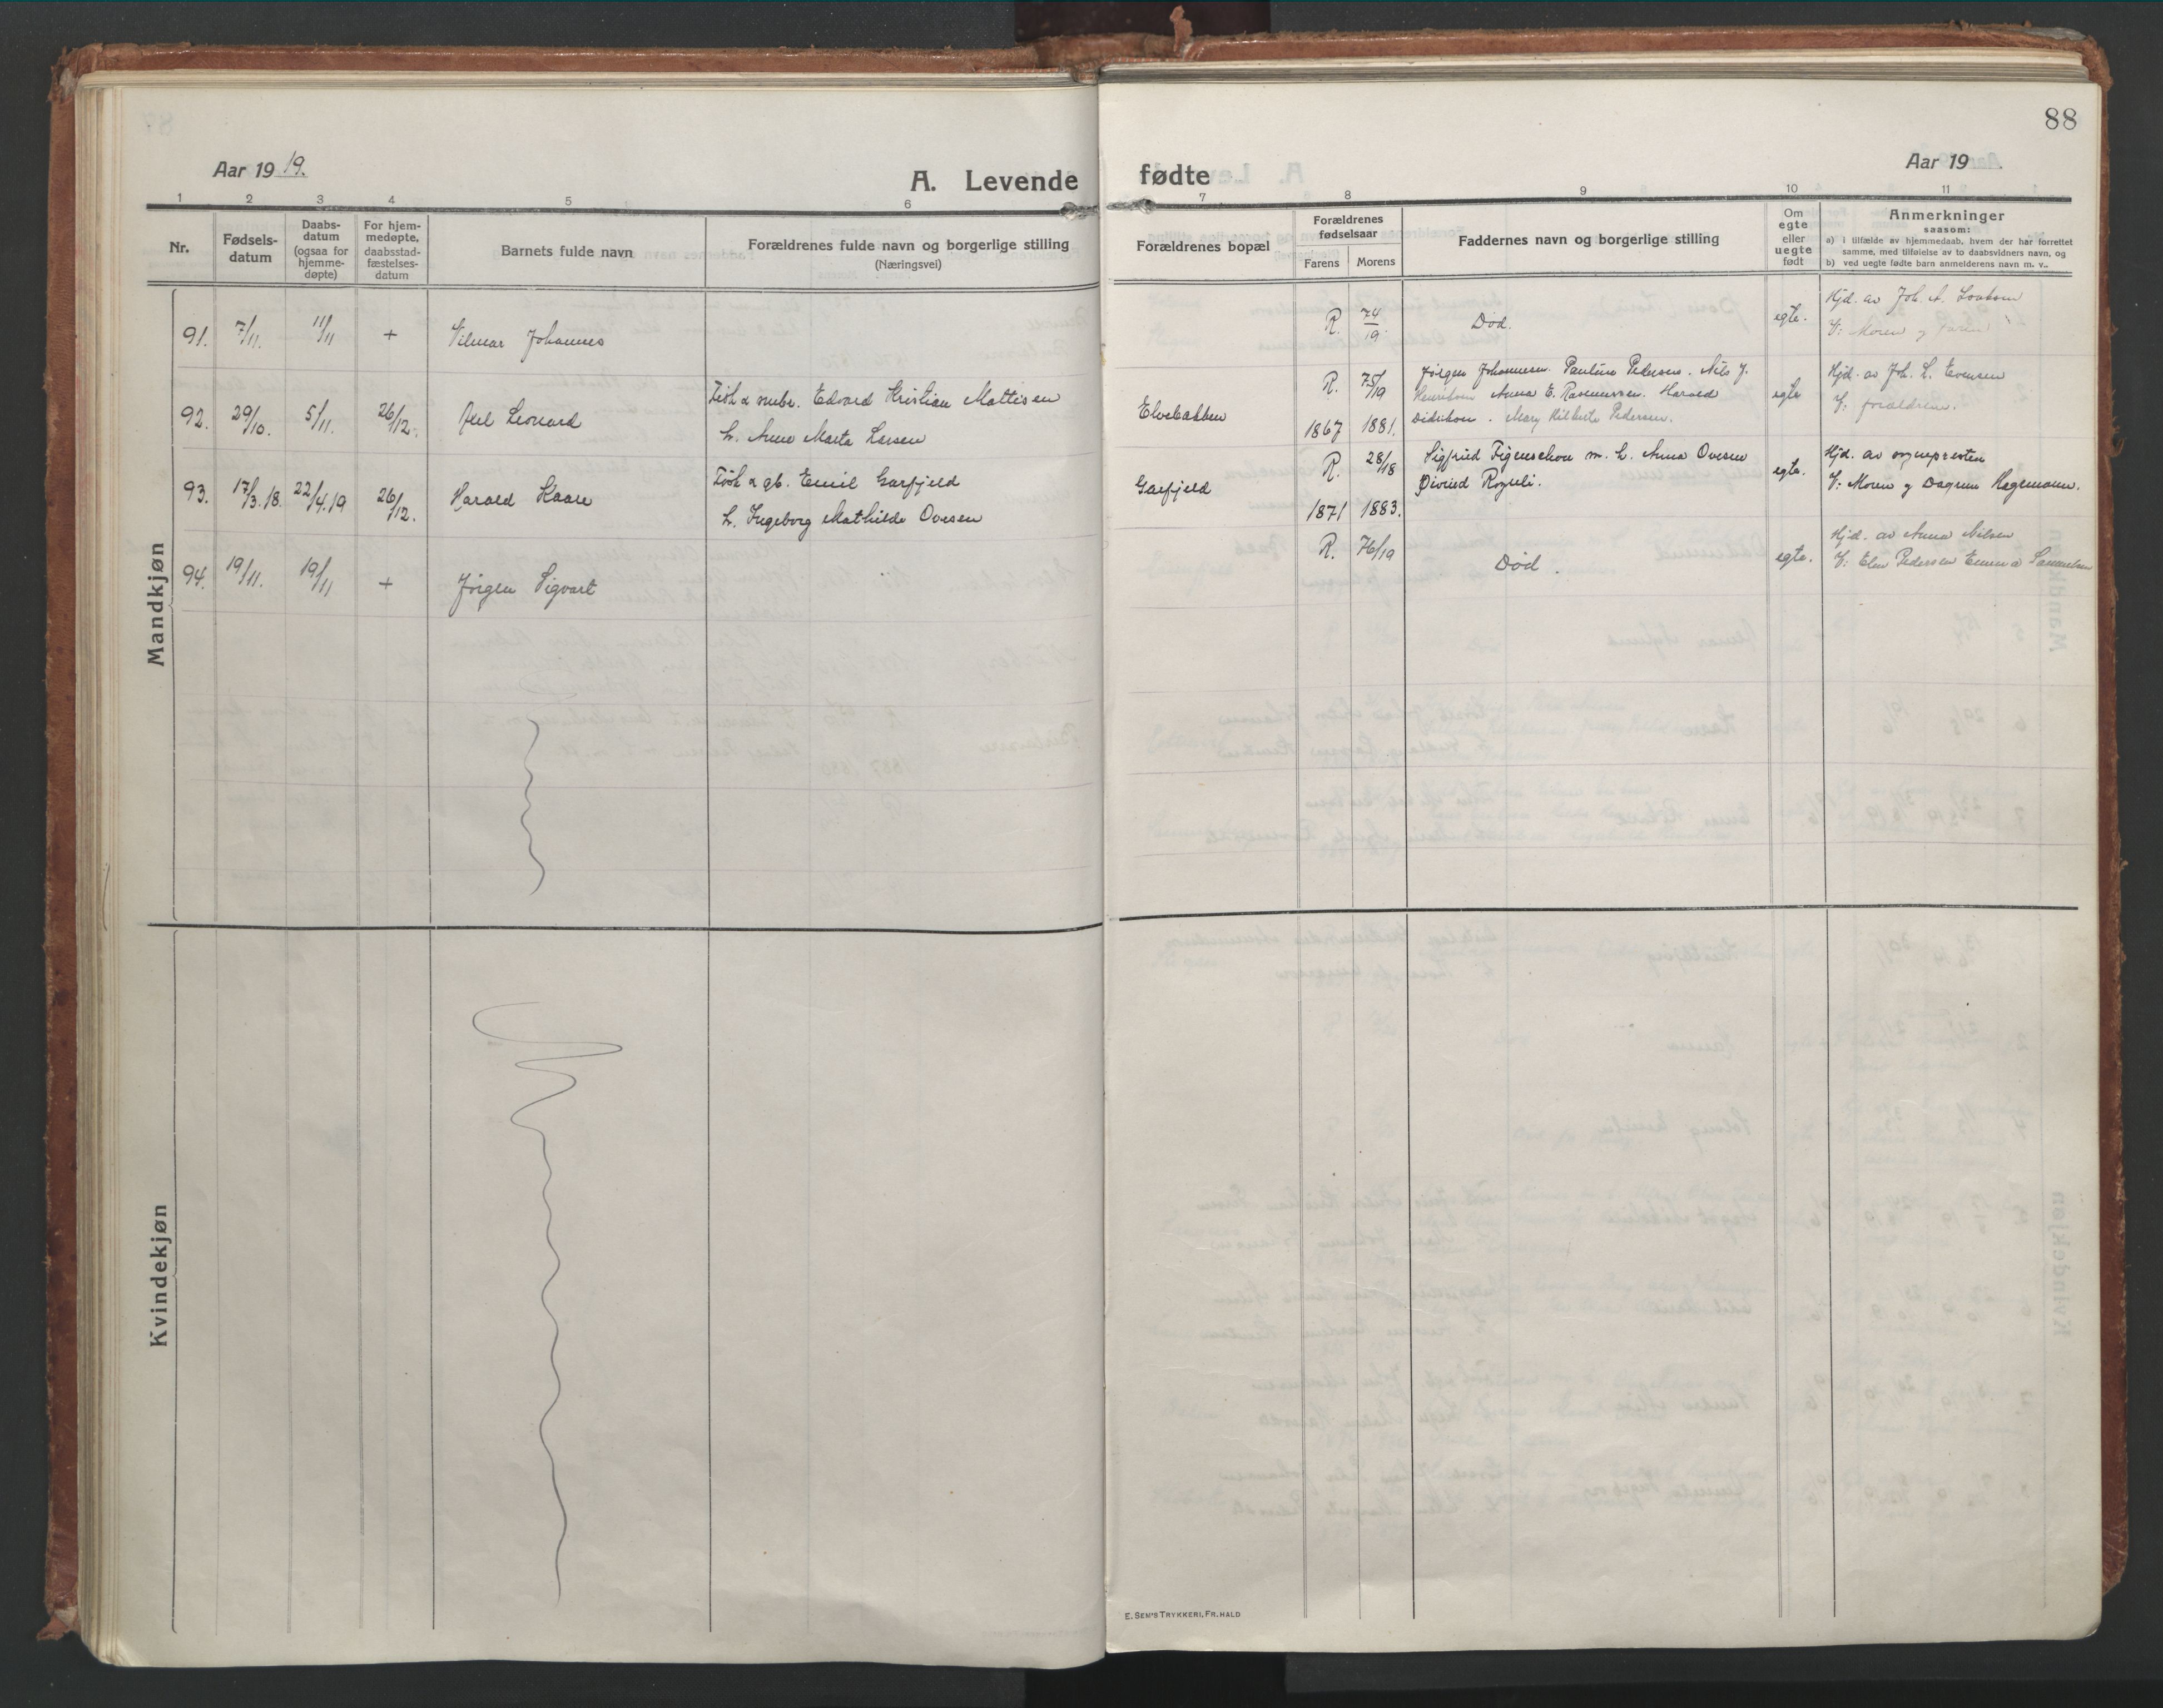 88
Aar 19 19.
A. Levende
fødte
Aar 19
1 2 3 4 5 6 7 8 9 10 11
Nr.
Fødsels-
datum
Daabs-
datum
(ogsaa for
hjemme-
døpte)
For hjem-
medøpte,
daabsstad-
fæstelses-
datum
Barnets fulde navn
Forældrenes fulde navn og borgerlige stilling
(Næringsvei)
Forældrenes bopæl
Forældrenes
fødselsaar
Farens Morens
Faddernes navn og borgerlige stilling
Om
egte
eller
uegte
født
Anmerkninger
saasom:
a) i tilfælde av hjemmedaab, hvem der har forrettet
samme, med tilføielse av to daabsvidners navn, og
b) ved uegte fødte barn anmelderens navn m. v..
Mandkjøn
91. 7/11. 11/11 + Vilmar Johannes R. 74/19 Død. egte. Hjd. av Joh. A.
V: Moren og faren
92. 29/10. 5/11. 26/12. Axel Leonard
Fisk & smbr. Edvard Kristian Mattisen
h. Anna Marta Larsen
Elvebakken R. 75/19
1867 1881.
Jørgen Johannesen. Pauline Pedersen. Nils J.
Henriksen Anna E. Rasmussen. Harald
Didriksen. Mary Hilberte Pedersen.
egte Hjd. av Joh. L. Evensen
V: forældrene.
93. 17/3.18. 22/4.19 26/12. Harald Kaare
Fisk & gb. Emil Garfjeld
h. Ingeborg Mathilde Ovesen
Garfjeld R. 28/18
1871 1883.
Sigfried Figenschou m. h. Anna Ovesen
Øivind
egte. Hjd. av sognepresten
V: Moren og Dagrun Hagemann.
94. 19/11. 19/11 + Jørgen Sigvart R. 76/19 Død. egte. Hjd. av Anna Nilsen
V: Elen Pedersen Emma Samuelsen
Kvindekjøn
E. SEM'S TRYKKERI, FR.HALD